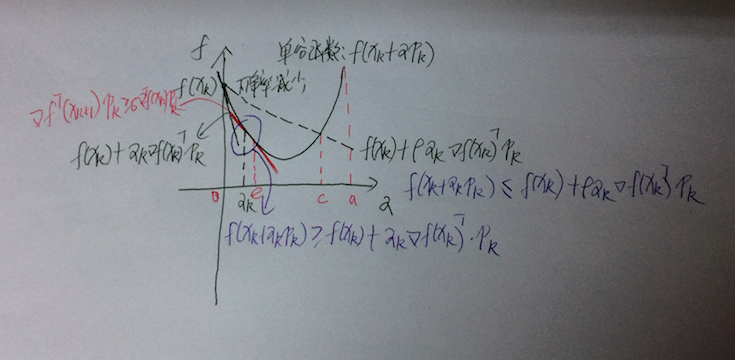 f
单谷函数: f(x_k+αp_k)
f(x_k)
斜率减少
∇f^T(x_{k+1})p_k≥σ∇f(x_k)^Tp_k
f(x_k)+α_k∇f(x_k)^T p_k
f(x_k)+ρα_k∇f(x_k)^T p_k
f(x_k+α_kp_k) ≤ f(x_k)+ρα_k∇f(x_k)^T p_k
0 α_k e c a α
f(x_k+α_kp_k) ≥ f(x_k)+α_k∇f(x_k)^T·p_k